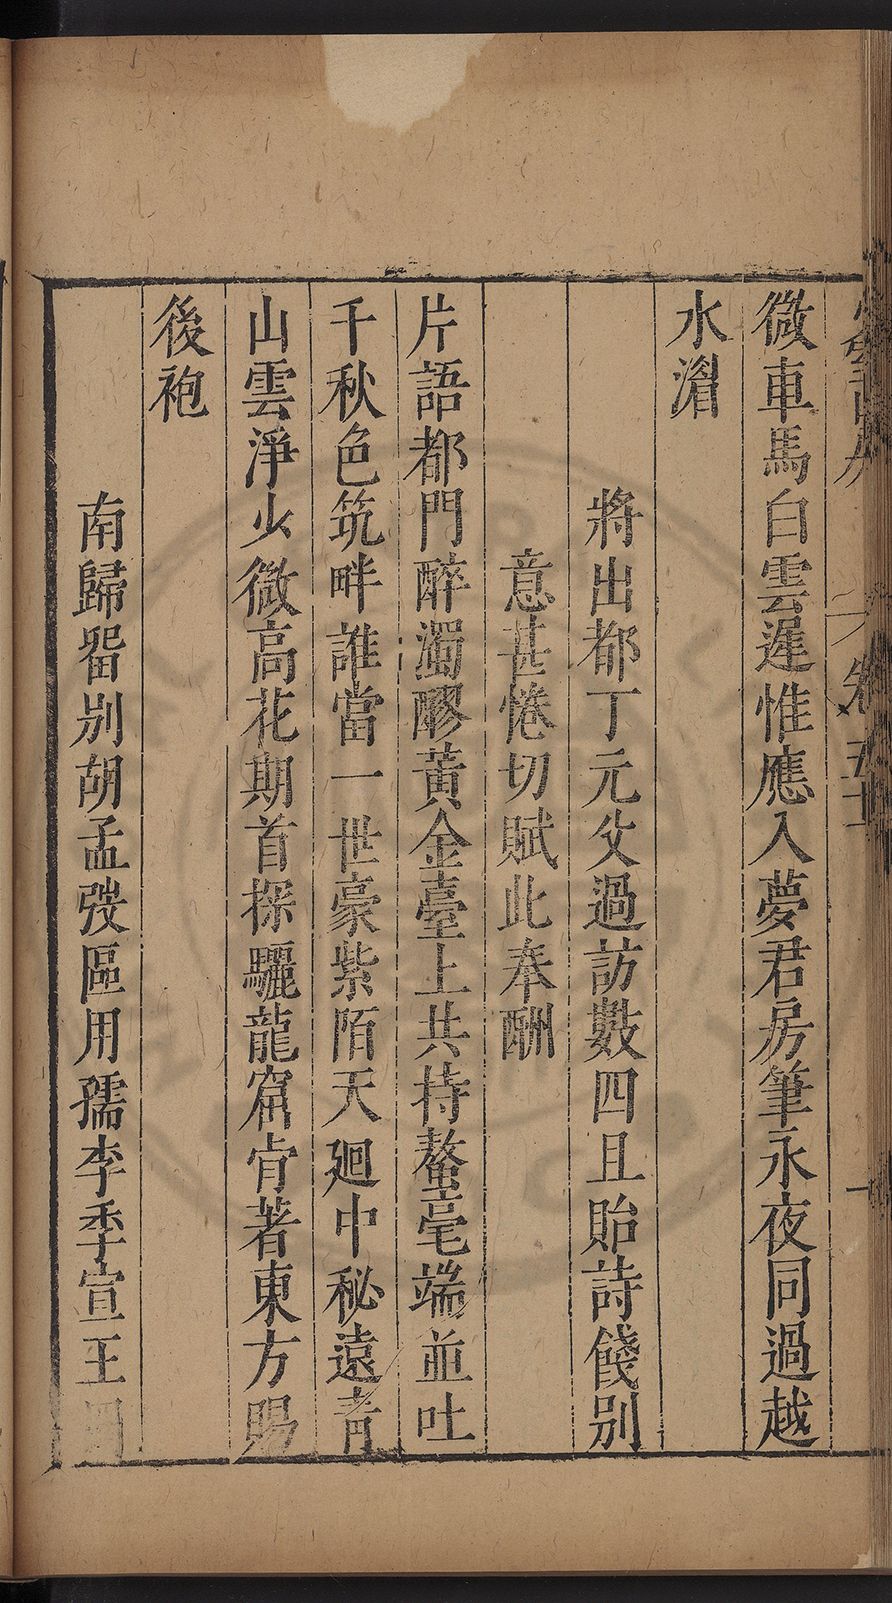 卷五十
微車馬白雲遲惟應入夢君房筆永夜同過越
水湄
將出都丁元父過訪數四且貽詩餞別
意甚惓切賦此奉酬
片語都門醉濁醪黃金臺上共持螯毫端並吐
千秋色筑畔誰當一世豪紫陌天廻中秘遠青
山雲淨少微高花期首探驪龍窟肯著東方賜
後袍
南歸畱別胡孟弢區用孺李季宣王